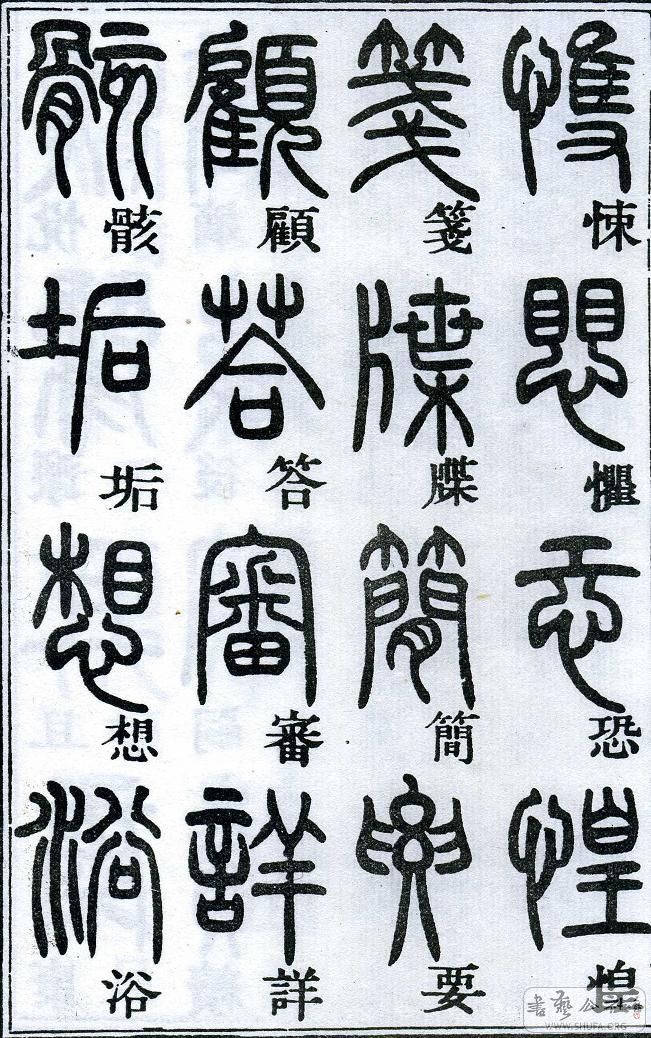 悚懼恐惶
箋牒簡要
顧答審詳
骸垢想浴
書藝公社
WWW.SHUFA.ORG